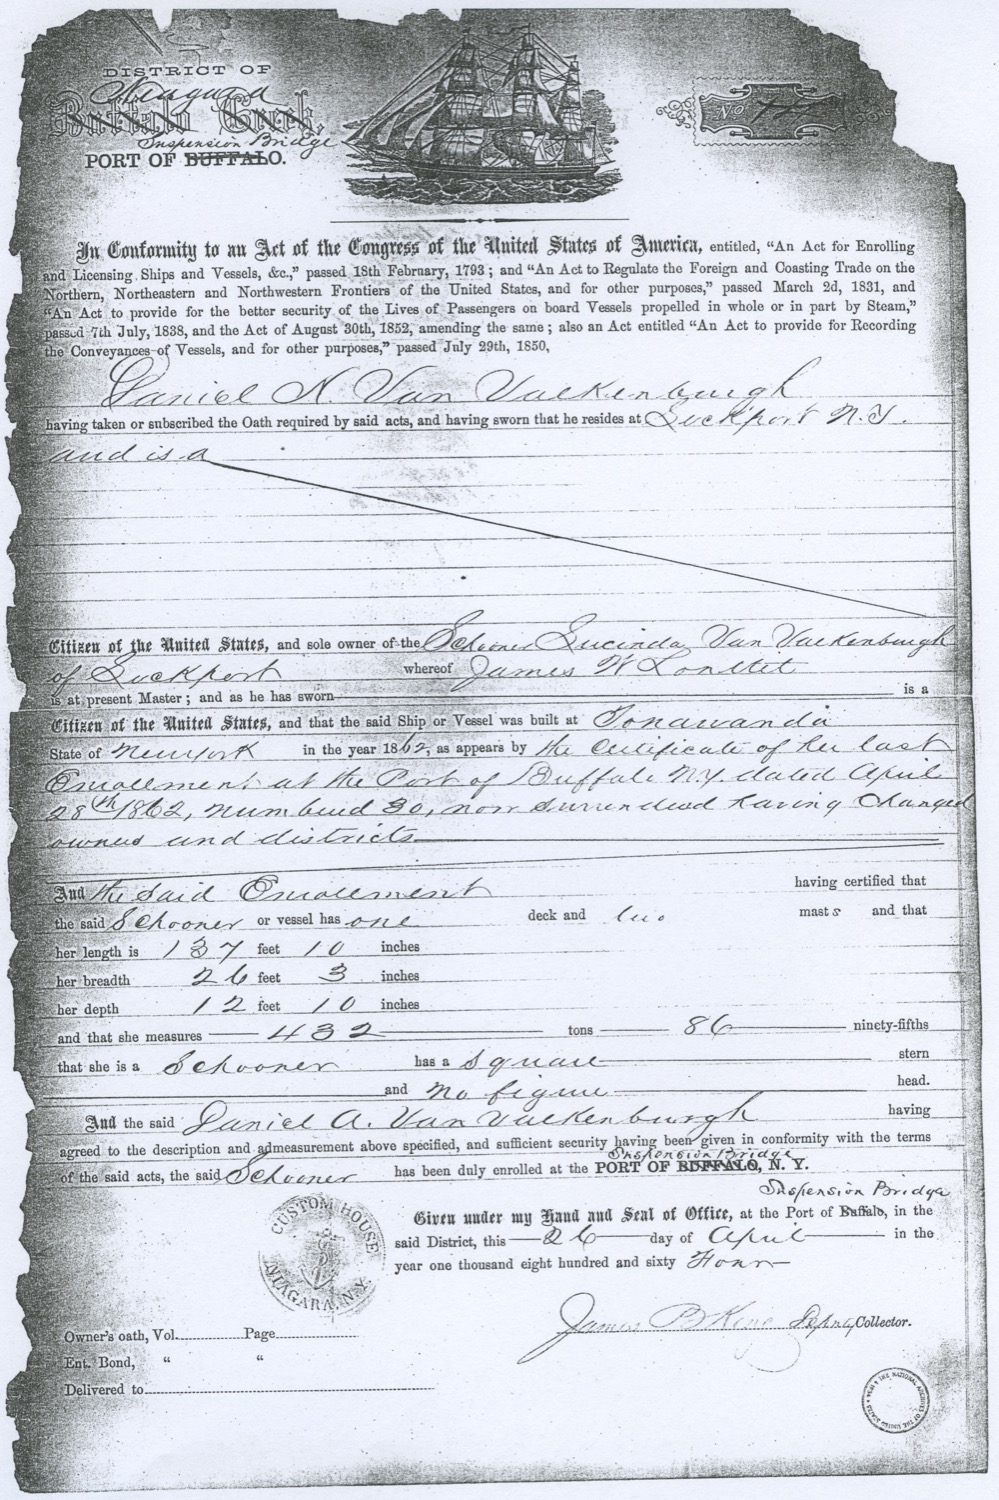 DISTRICT OF
Niagara
Buffalo Creek,
Suspension Bridge
PORT OF BUFFALO.
No
In Conformity to an Act of the Congress of the United States of America, entitled, “An Act for Enrolling
and Licensing Ships and Vessels, &c.,” passed 18th February, 1793; and “An Act to Regulate the Foreign and Coasting Trade on the
Northern, Northeastern and Northwestern Frontiers of the United States, and for other purposes,” passed March 2d, 1831, and
“An Act to provide for the better security of the Lives of Passengers on board Vessels propelled in whole or in part by Steam,”
passed 7th July, 1838, and the Act of August 30th, 1852, amending the same; also an Act entitled “An Act to provide for Recording
the Conveyances of Vessels, and for other purposes,” passed July 29th, 1850,
Daniel A. Van Valkenburgh
having taken or subscribed the Oath required by said acts, and having sworn that he resides at Lockport N.Y.
and is a
Citizen of the United States, and sole owner of the Schooner Lucinda Van Valkenburgh
of Lockport whereof James W
is at present Master; and as he has sworn is a
Citizen of the United States, and that the said Ship or Vessel was built at Tonawanda
State of New York in the year 1862, as appears by the Certificate of her last
Enrollment at the Port of Buffalo N.Y. dated April
28th 1862, numbered 30, now surrendered having Changed
owners and districts
And the said Enrollment having certified that
the said Schooner or vessel has one deck and two masts and that
her length is 137 feet 10 inches
her breadth 26 feet 3 inches
her depth 12 feet 10 inches
and that she measures 432 tons 86 ninety-fifths
that she is a Schooner has a square stern
and no figure head.
And the said Daniel A. Van Valkenburgh having
agreed to the description and admeasurement above specified, and sufficient security having been given in conformity with the terms
Suspension Bridge
of the said acts, the said Schooner has been duly enrolled at the PORT OF BUFFALO, N. Y.
Suspension Bridge
Given under my Hand and Seal of Office, at the Port of Buffalo, in the
said District, this 26 day of April in the
year one thousand eight hundred and sixty Four
CUSTOM HOUSE
NIAGARA, N.Y.
James B King Depty Collector.
Owner's oath, Vol. Page
Ent. Bond, “ “
Delivered to
THE NATIONAL ARCHIVES OF THE UNITED STATES